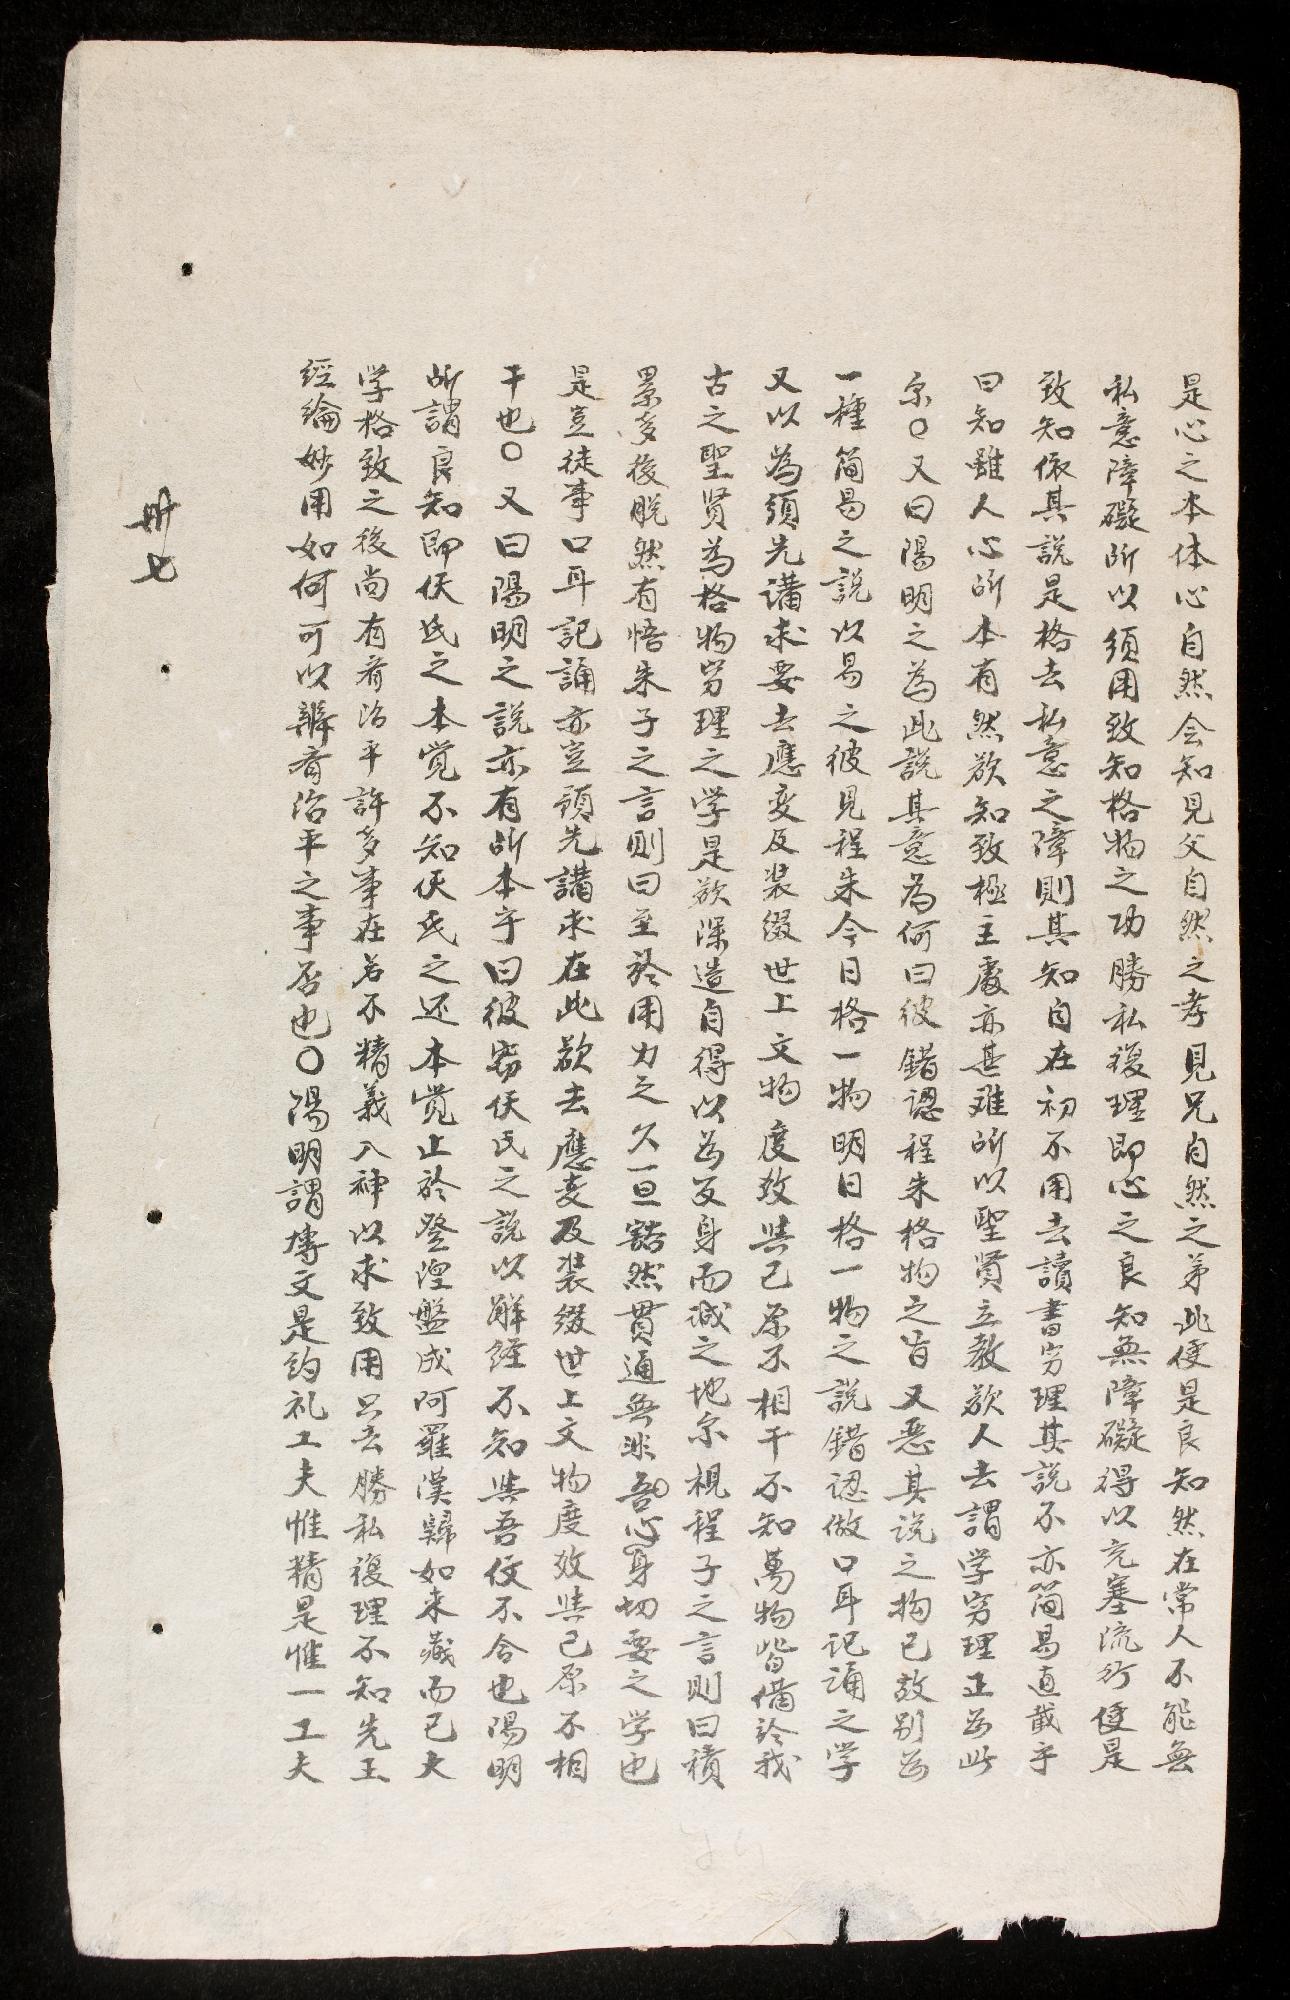 是心之本体心自然会知見父自然之孝見兄自然之弟此便是良知然在常人不能無
私意障礙所以須用致知格物之功勝私復理即心之良知無障礙得以充塞流行便是
致知依其説是格去私意之障則其知自在初不用去讀書穷理其説不亦简易直截乎
曰知雖人心所本有然欲知致極主處亦甚难所以聖賢立教欲人去謂学穷理正为此
尔〇又曰陽明之為此説其意為何曰彼錯認程朱格物之旨又惡其说之拘已故别为
一種简易之説以易之彼見程朱今日格一物明日格一物之説錯認做口耳记誦之学
又以為須先講求要去應变及装缀世上文物度效與己原不相干不知萬物皆備於我
古之聖賢為格物穷理之学是欲深造自得以为反身而诚之地尔視程子之言則曰積
累多後脱然有悟朱子之言則曰至於用力之久一旦豁然貫通無非吾心身切要之学也
是豈徒事口耳記誦亦豈須先講求在此欲去應変及装缀世上文物度效與己原不相
干也〇又曰陽明之説亦有所本乎曰彼窃仸氏之説以解經不知與吾伩不合也陽明
所謂良知即仸氏之本覚不知仸氏之还本覚止於登涅盤成阿羅漢歸如来藏而已夫
学格致之後尚有脊治平許多事在若不精義入神以求致用只去勝私復理不知先王
經綸妙用如何可以辦脊治平之事否也〇陽明謂博文是约礼工夫惟精是惟一工夫
卌七